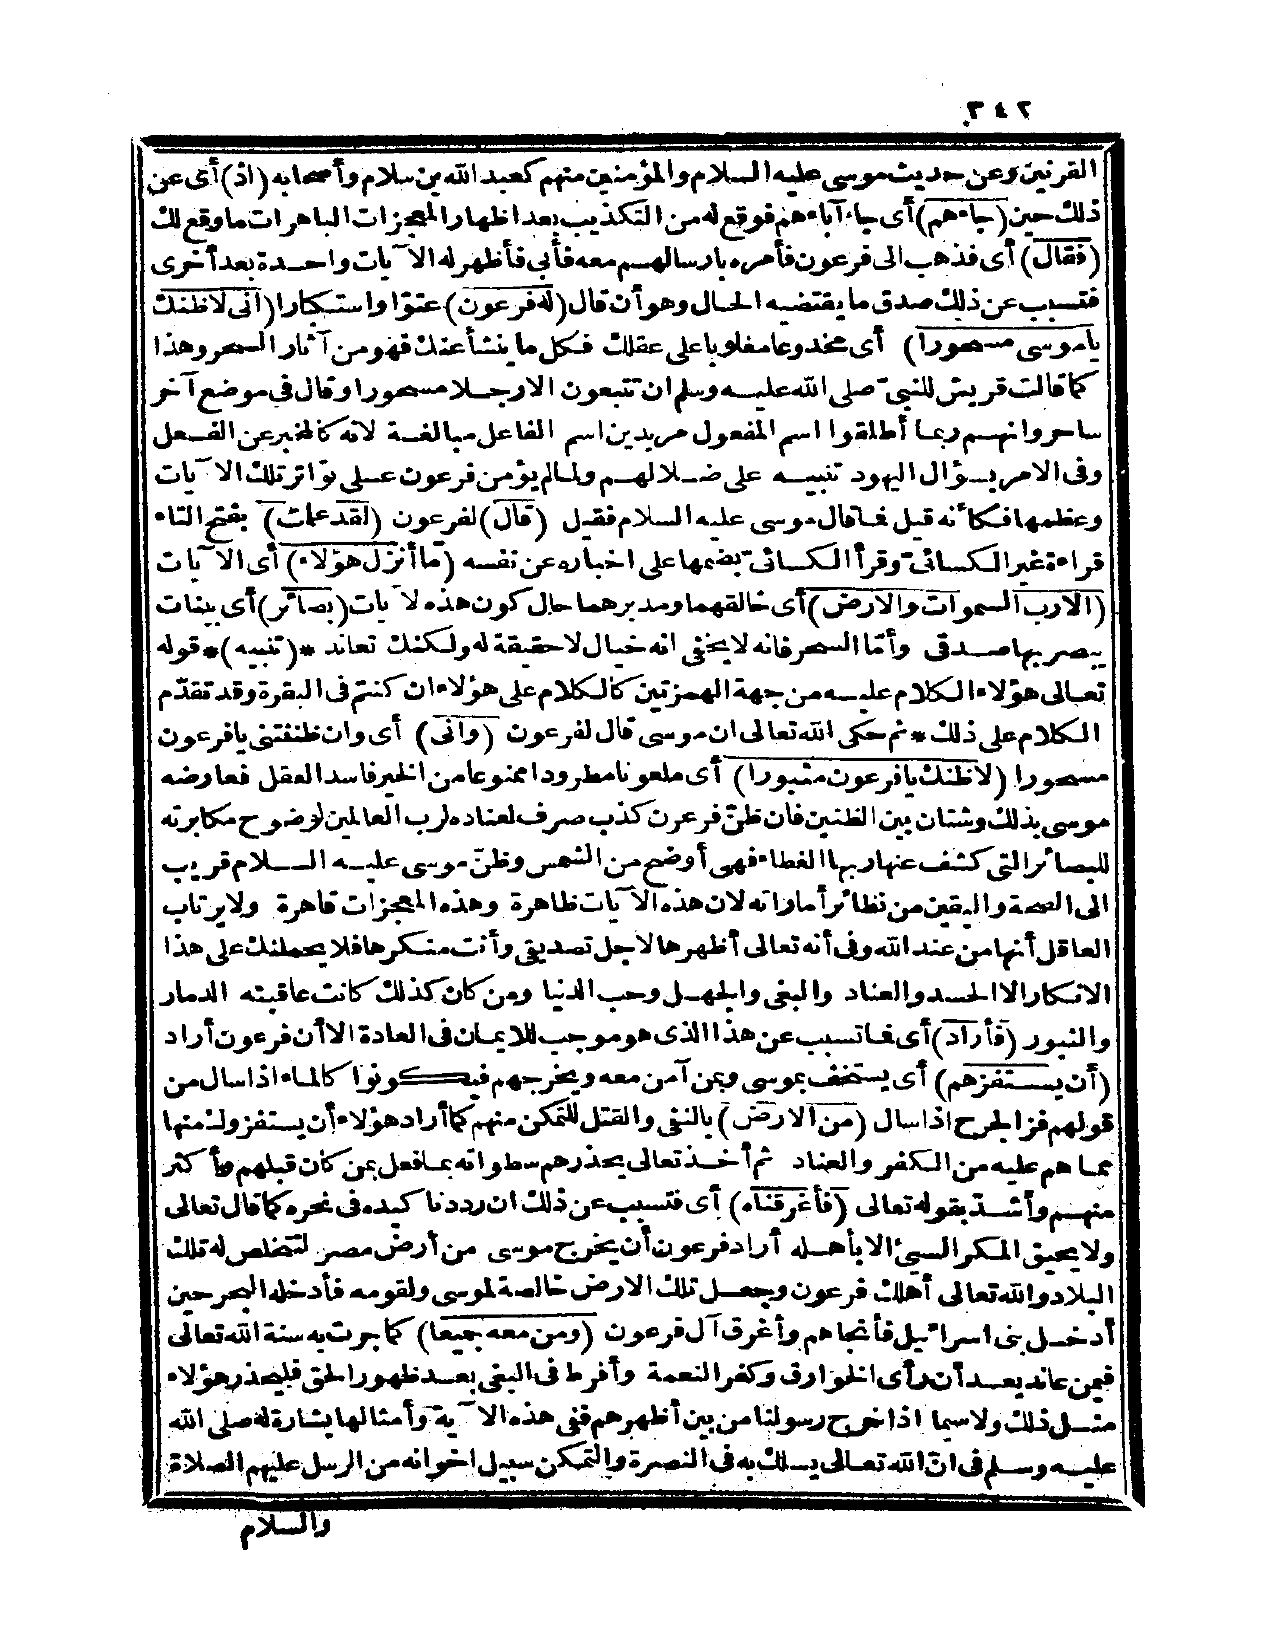 ٣٤٢
القرنين وعن حديث موسى عليه السلام والمؤمنين منهم كعبد الله بن سلام وأصحابه (اذ) أى عن
ذلك حين (جاءهم) أى جاء آباءهم فوقع له من التكذيب بعد اظهار المعجزات الباهرات ما وقع لك
(فقال) أى فذهب الى فرعون فأمره بارسالهم معه فأبى فأظهر له الآيات واحدة بعد أخرى
فتسبب عن ذلك صدق ما يقتضيه الحال وهو أن قال (له فرعون) عتوّا واستكبارا (انى لاظنك
ياموسى مسحورا) أى مخدوعا مغلوبا على عقلك فكل ما ينشأ عنك فهو من آثار السحر وهذا
كما قالت قريش للنبىّ صلى الله عليه وسلم ان تتبعون الا رجلا مسحورا وقال فى موضع آخر
ساحر وانهم ربما أطلقوا اسم المفعول مريدين اسم الفاعل مبالغة لانه كالمخبر عن الفعل
وفى الامر بسؤال اليهود تنبيه على ضلالهم ولما لم يؤمن فرعون على تواتر تلك الآيات
وعظمها فكأنه قيل فما قال موسى عليه السلام فقيل (قال) لفرعون (لقد علمت) بفتح التاء
قراءة غير الكسائىّ وقرأ الكسائىّ بضمها على اخباره عن نفسه (ما أنزل هؤلاء) أى الآيات
(الا رب السموات والارض) أى خالقهما ومدبرهما حال كون هذه الآيات (بصائر) أى بينات
يبصر بها صدقى وأمّا السحر فانه لا يخفى انه خيال لا حقيقة له ولكنك تعاند *(تنبيه)* قوله
تعالى هؤلاء الكلام عليه من جهة الهمزتين كالكلام على هؤلاء ان كنتم فى البقرة وقد تقدّم
الكلام على ذلك * ثم حكى الله تعالى ان موسى قال لفرعون (وانى) أى وان ظننتنى يافرعون
مسحورا (لاظنك يافرعون مثبورا) أى ملعونا مطرودا ممنوعا من الخير فاسد العقل فعارضه
موسى بذلك وشتان بين الظنين فان ظنّ فرعون كذب صرف لعناده لرب العالمين لوضوح مكابرته
للبصائر التى كشف عنها ربها الغطاء فهى أوضح من الشمس وظنّ موسى عليه السلام قريب
الى الصحة واليقين من نظائر أماراته لان هذه الآيات ظاهرة وهذه المعجزات قاهرة ولا يرتاب
العاقل أنها من عند الله وفى أنه تعالى أظهرها لاجل تصديقى وأنت منكرها فلا يحملنك على هذا
الانكار الا الحسد والعناد والبغى والجهل وحب الدنيا ومن كان كذلك كانت عاقبته الدمار
والثبور (فأراد) أى فما تسبب عن هذا الذى هو موجب للايمان فى العادة الا أن فرعون أراد
(أن يستفزهم) أى يستخف بموسى وبمن آمن معه ويخرجهم فيكونوا كالماء اذا سال من
قولهم فز الجرح اذا سال (من الارض) بالنفى والقتل للتمكن منهم كما أراد هؤلاء أن يستفزوك منها
مما هم عليه من الكفر والعناد ثم أخذ تعالى يحذرهم سطواته بما فعل بمن كان قبلهم وأكثر
منهم وأشدّ بقوله تعالى (فأغرقناه) أى فتسبب عن ذلك ان رددنا كيده فى نحره كما قال تعالى
ولا يحيق المكر السيئ الا بأهله أراد فرعون أن يخرج موسى من أرض مصر لتخلص له تلك
البلاد والله تعالى أهلك فرعون وجعل تلك الارض خالصة لموسى ولقومه فأدخله البحر حين
أدخل بنى اسرائيل فأنجاهم وأغرق آل فرعون (ومن معه جميعا) كما جرت به سنة الله تعالى
فيمن عاند بعد أن رأى الخوارق وكفر النعمة وأفرط فى البغى بعد ظهور الحق فليحذر هؤلاء
مثل ذلك ولا سيما اذا خرج رسولنا من بين أظهرهم ففى هذه الآية وأمثالها بشارة له صلى الله
عليه وسلم فى انّ الله تعالى يسلك به فى النصرة والتمكن سبيل اخوانه من الرسل عليهم الصلاة
والسلام